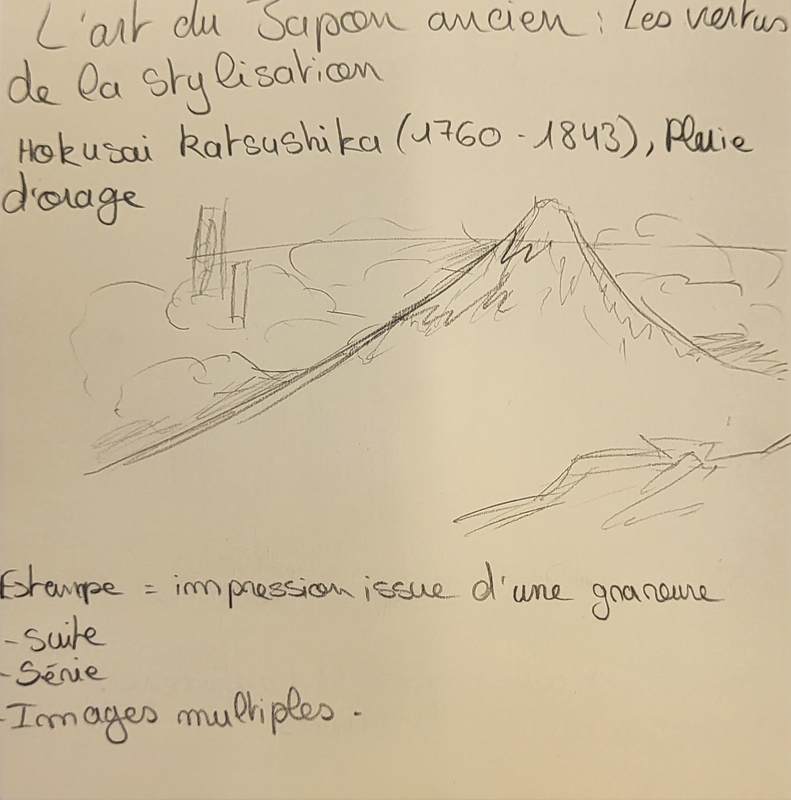 L'art du Japon ancien : Les vertus
de la stylisation
Hokusai Katsushika (1760 - 1843), Pluie
d'orage
Estampe = impression issue d'une gravure
- Suite
- Série
- Images multiples.